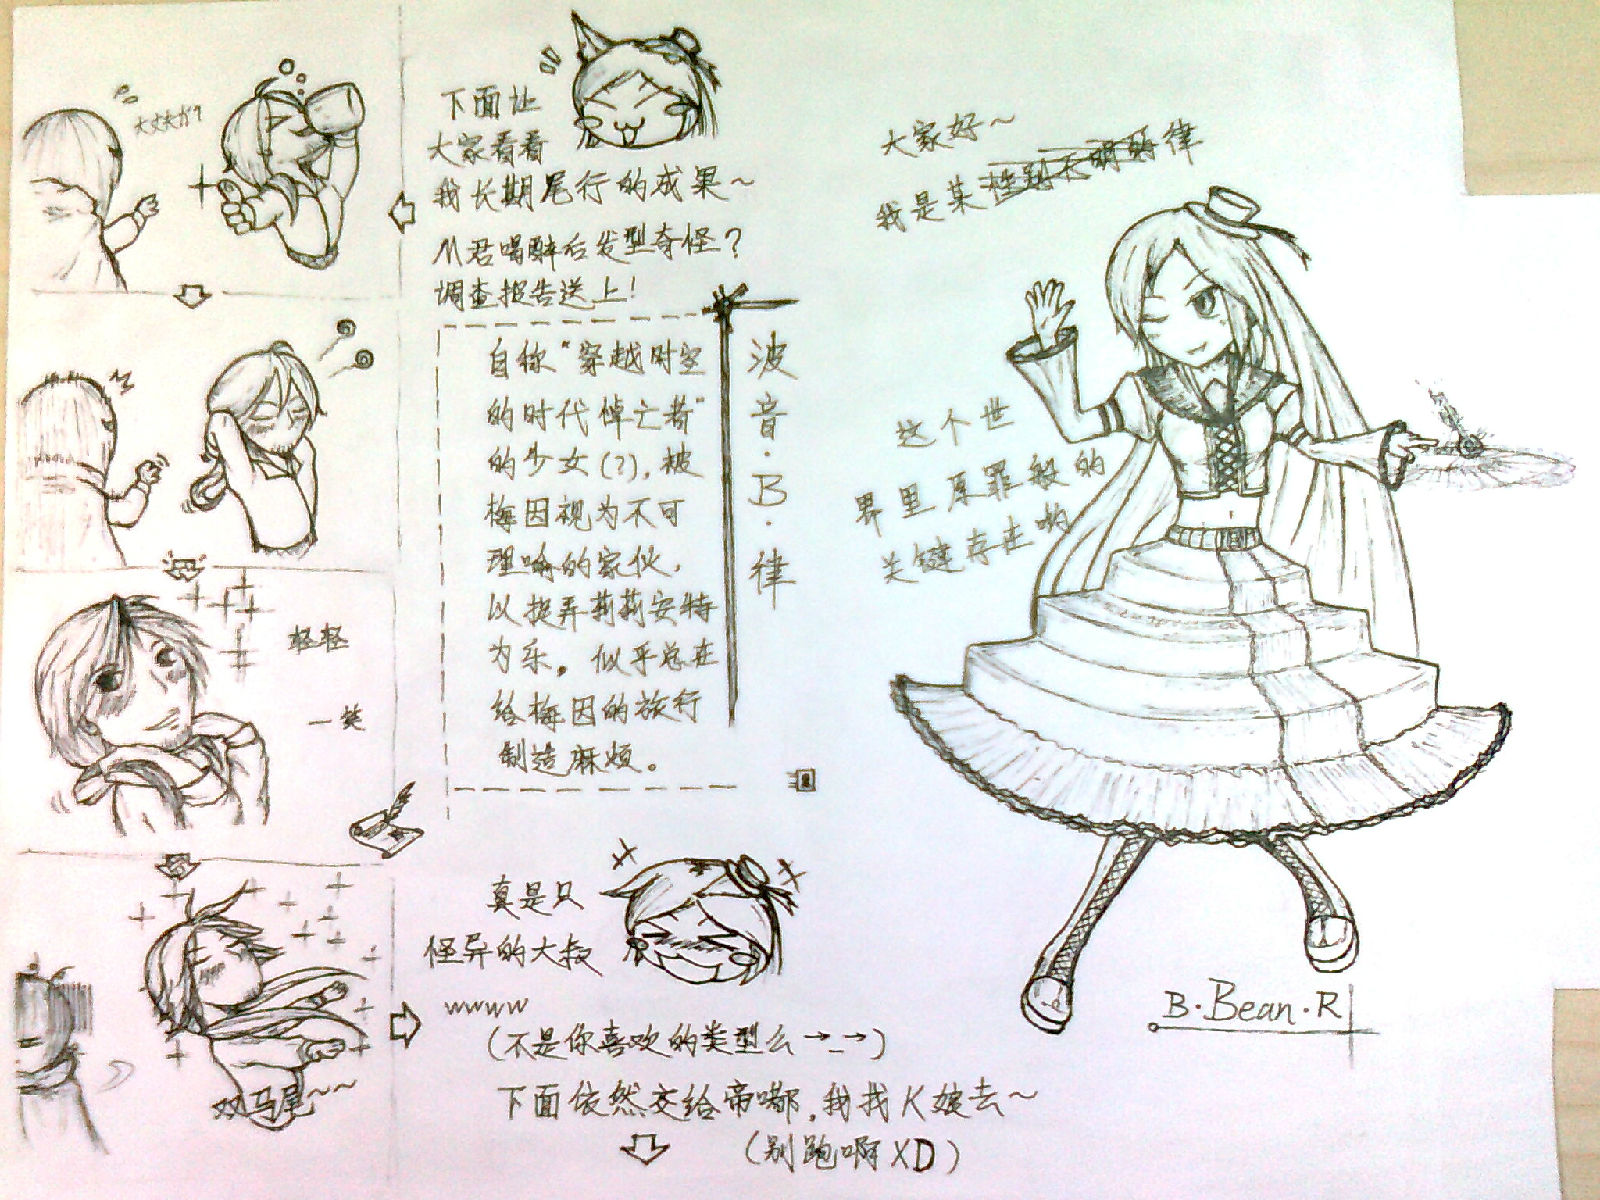 大家好～
我是某性别不明的律
这个世
界里原罪般的
关键存在哟
B·Bean·R
下面让
大家看看
我长期尾行的成果～
M君喝醉后发型奇怪？
调查报告送上！
大丈夫か？
轻轻
一笑
双马尾~~
波音·B·律
自称“穿越时空
的时代悼亡者”
的少女(?)，被
梅因视为不可
理喻的家伙，
以捉弄莉莉安特
为乐。似乎总在
给梅因的旅行
制造麻烦。
真是只
怪异的大叔
wwww
(不是你喜欢的类型么→_→)
下面依然交给帝嘟，我找K娘去～
(别跑啊XD)